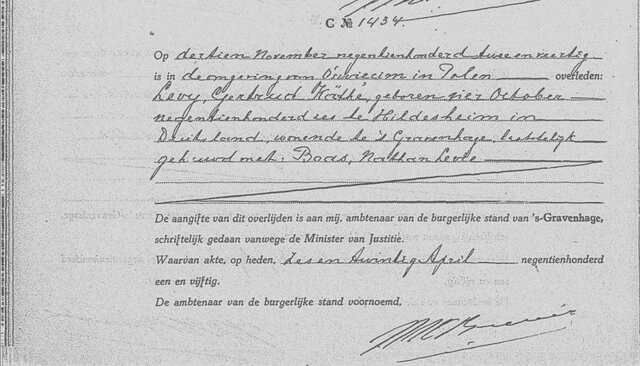 C № 1434.
Op dertien November negentienhonderd twee en veertig
is in de omgeving van Oswiecim in Polen overleden:
Levy, Gertrud Käthe, geboren vier October
negentienhonderd zes te Hildesheim in
Duitsland, wonende te 's Gravenhage, laatstelijk
gehuwd met: Boas, Nathan Levie
De aangifte van dit overlijden is aan mij, ambtenaar van de burgerlijke stand van 's-Gravenhage,
schriftelijk gedaan vanwege de Minister van Justitie.
Waarvan akte, op heden, zes en twintig April negentienhonderd
een en vijftig.
De ambtenaar van de burgerlijke stand voornoemd,